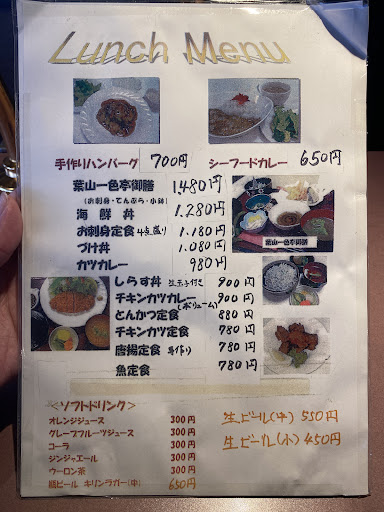 Lunch Menu
手作りハンバーグ 700円 シーフードカレー 650円
葉山一色亭御膳 1,480円
(お刺身・てんぷら・小鉢)
海鮮丼 1,280円
お刺身定食 4点盛り 1,180円
づけ丼 1,080円
カツカレー 980円
葉山一色亭御膳
しらす丼 生玉子付き 900円
チキンカツカレー 900円
(ボリューム)
とんかつ定食 880円
チキンカツ定食 780円
唐揚定食 手作り 780円
魚定食 780円
<ソフトドリンク>
オレンジジュース 300円
グレープフルーツジュース 300円
コーラ 300円
ジンジャエール 300円
ウーロン茶 300円
瓶ビール キリンラガー(中) 650円
生ビール(中) 550円
生ビール(小) 450円